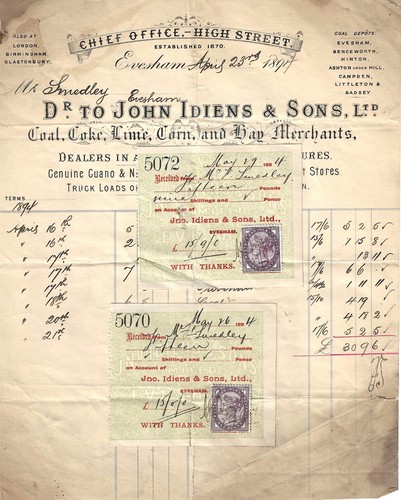 CHIEF OFFICE,—HIGH STREET.
ESTABLISHED 1870.
ALSO AT
LONDON,
BIRMINGHAM,
GLASTONBURY.
COAL DEPOTS:
EVESHAM,
BENGEWORTH,
HINTON,
ASHTON UNDER HILL,
CAMPDEN,
LITTLETON &
BADSEY
Evesham April 23rd 1894
Mr Smedley
Evesham
DR TO JOHN IDIENS & SONS, LTD
Coal, Coke, Lime, Corn, and Hay Merchants,
DEALERS IN A URES.
Genuine Guano & N t Stores
TRUCK LOADS OF N.
TERMS
1894
April 16th 17/6 5 2 6
" 16th 2 15/6 1 5 8
" 17th 7 13 11
" 17th 7 17/6 6 6
" 17th 6 1 11 11
" 18th 15/10 4 19
" 20th 4 2
" 21st 5 17/6 5 2 5
£ 30 9 6
5072 May 29 1894
Received of Mr Smedley
Fifteen Pounds
nine Shillings and Pence
on Account of
Jno. Idiens & Sons, Ltd.,
EVESHAM.
£ 15/9/0
WITH THANKS.
5070 May 26 1894
Received of Mr Smedley
fifteen Pounds
Shillings and Pence
on Account of
Jno. Idiens & Sons, Ltd.,
EVESHAM.
£ 15/0/0
WITH THANKS.